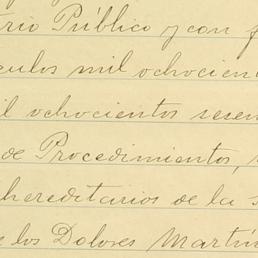 rio Público y con f
culos mil ochocien
il ochocientos sesen
de Procedimientos,
hereditarios de la s
los Dolores Martín